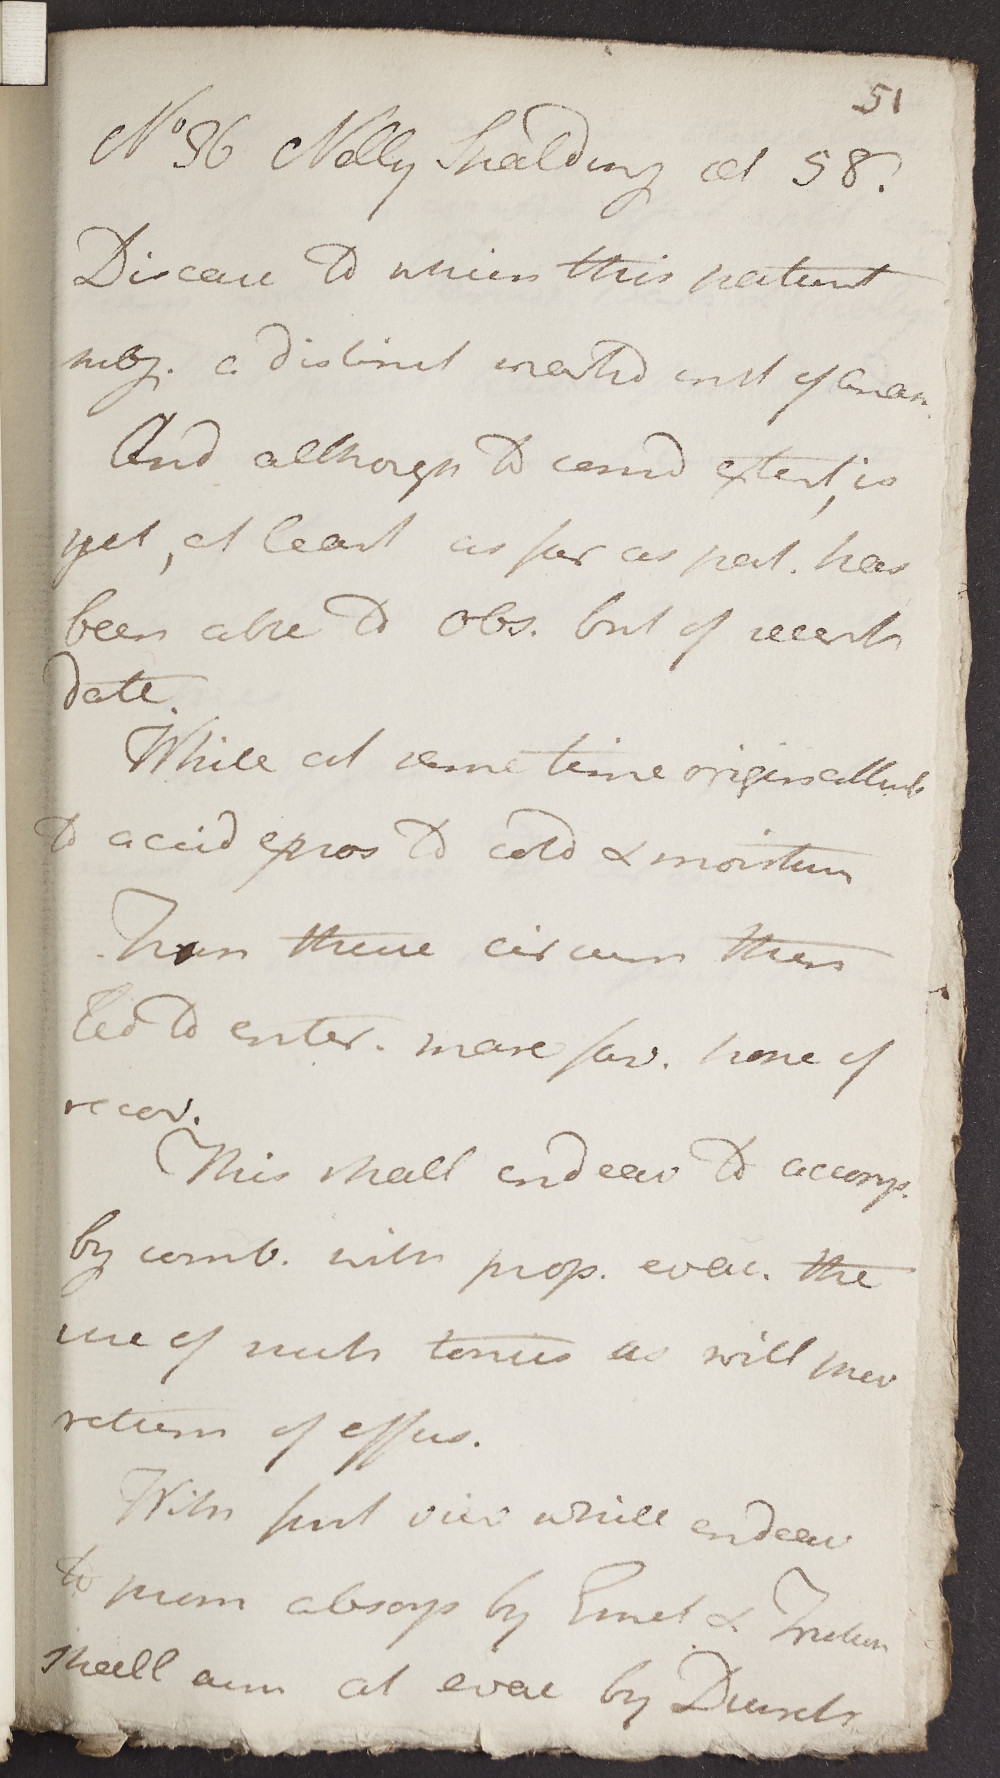 51
No 36 Nelly Spalding aet 58.
Disease to which this patient
subj. a distinct marked inst of Anas.
And although to consid extent, is
yet, at least as far as pat. has
been able to obs. but of recent
date.
While at same time origin attrib
to accid expos to cold & moisture
From these circum then
led to enter. more fav. hope of
recov.
This shall endeav to accomp.
by comb. with prop. evac. the
use of such tonics as will prev
return of effus.
With first view while endeav
to prom absorp by Emet & Friction
shall aim at evac by Diuretc